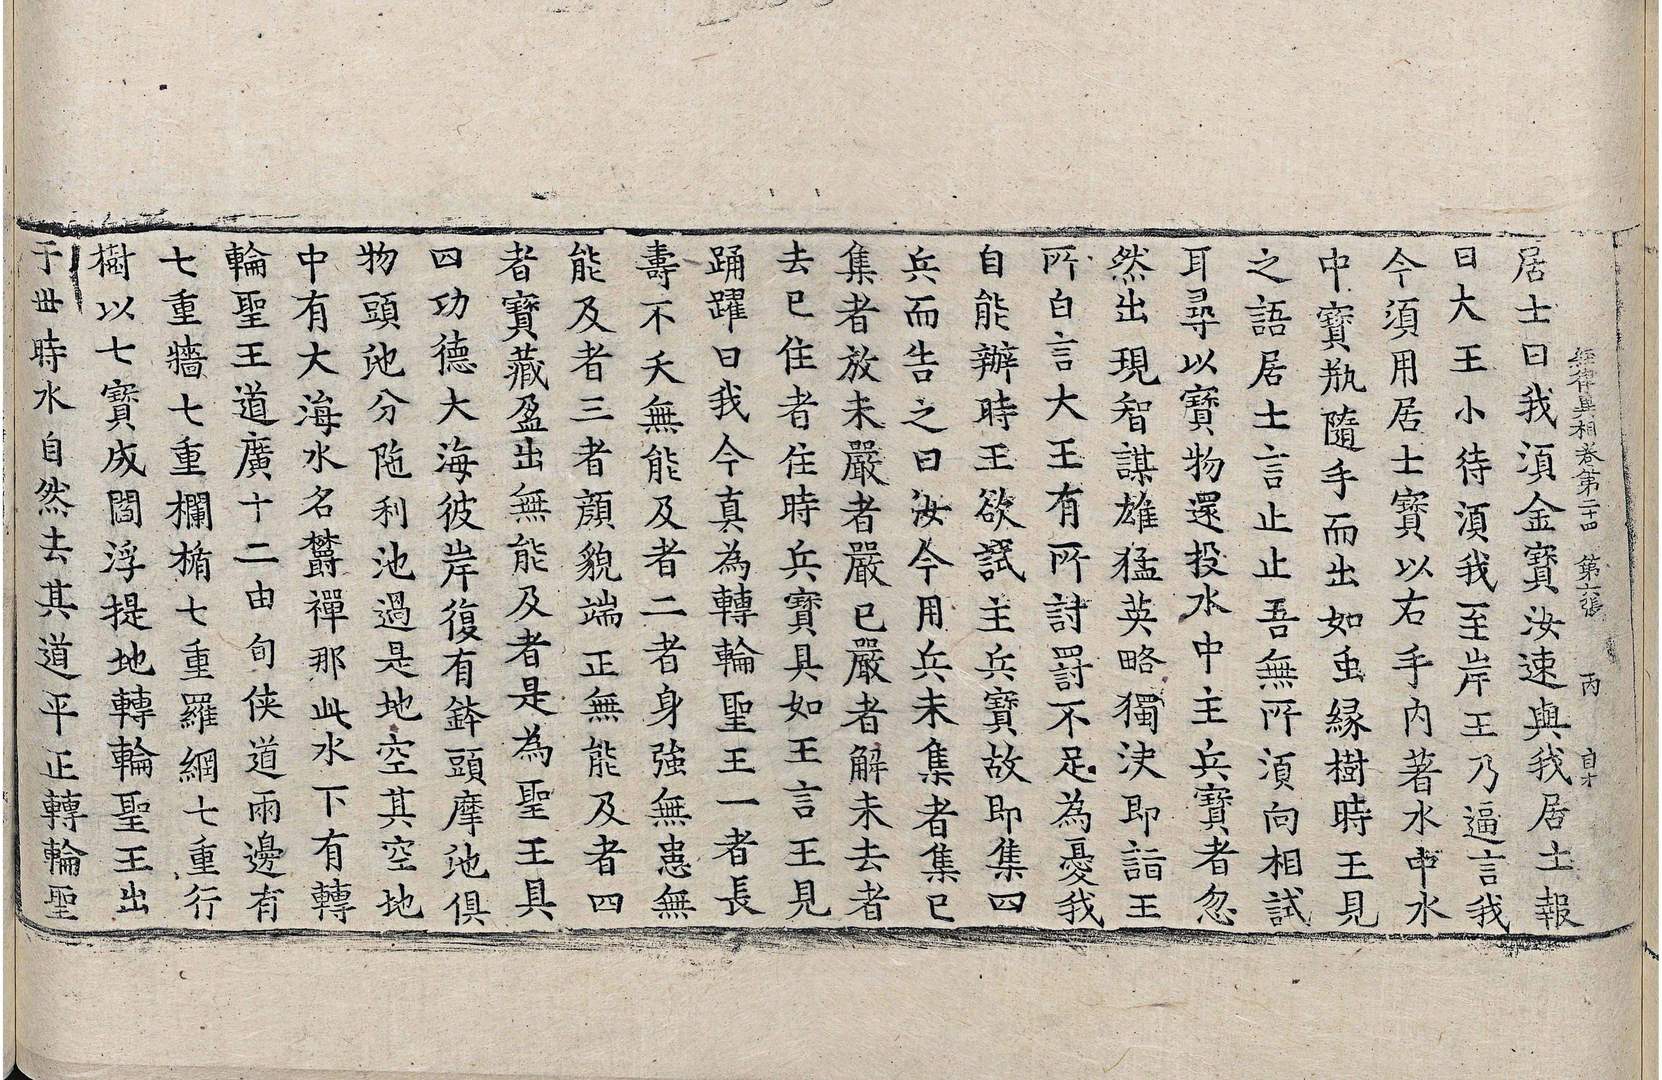 經律異相卷第二十四 第六張 丙
居士曰我湏金寶汝速與我居士報
曰大王小待湏我至岸王乃逼言我
今湏用居士寶以右手內著水中水
中寶瓶隨手而出如虫緣樹時王見
之語居士言止止吾無所湏向相試
耳尋以寶物還投水中主兵寶者忽
然出現智謀雄猛英略獨決即詣王
所白言大王有所討罰不足為憂我
自能辦時王欲試主兵寶故即集四
兵而告之曰汝今用兵未集者集已
集者放未嚴者嚴已嚴者解未去者
去已住者住時兵寶具如王言王見
踊躍曰我今真為轉輪聖王一者長
壽不夭無能及者二者身強無患無
能及者三者顔貌端正無能及者四
者寶藏盈出無能及者是為聖王具
四功德大海彼岸復有鉢頭摩池俱
物頭池分陁利池過是地空其空地
中有大海水名欝禪那此水下有轉
輪聖王道廣十二由旬俠道兩邊有
七重牆七重欄楯七重羅網七重行
樹以七寶成閻浮提地轉輪聖王出
于世時水自然去其道平正轉輪聖